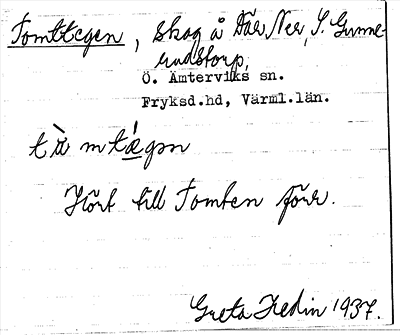 Tomttegen, skog å Där Ner, S. Gunne-
rudstorp,
Ö. Ämterviks sn.
Fryksd.hd, Värml.län.
tὰmtǽgɒn
Hört till Tomten förr.
Greta Hedin 1937.